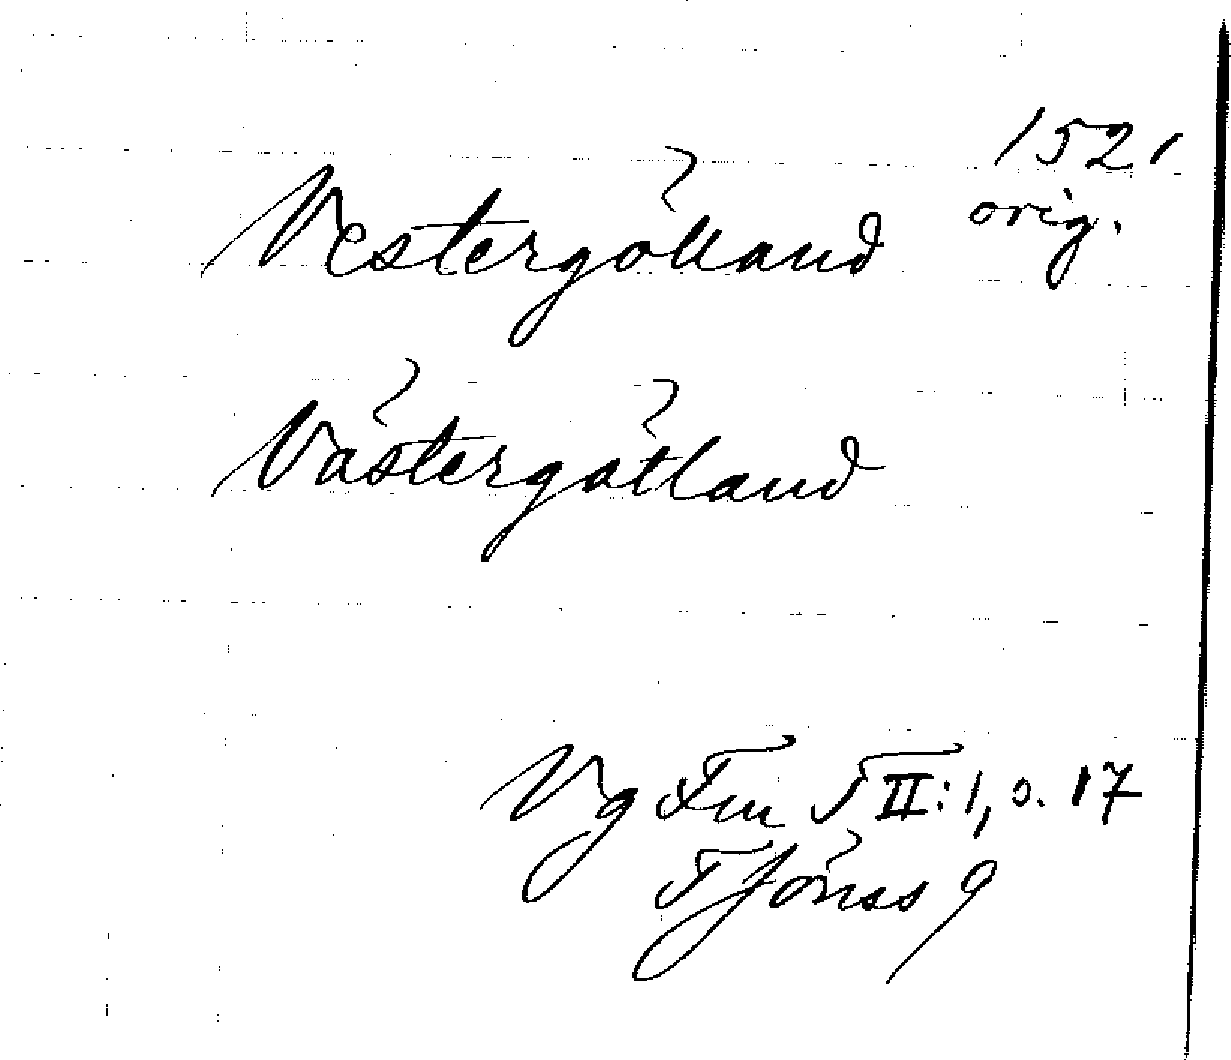 1521
orig.
Vestergötland
Västergötland
Vg Fm T II:1, s. 17